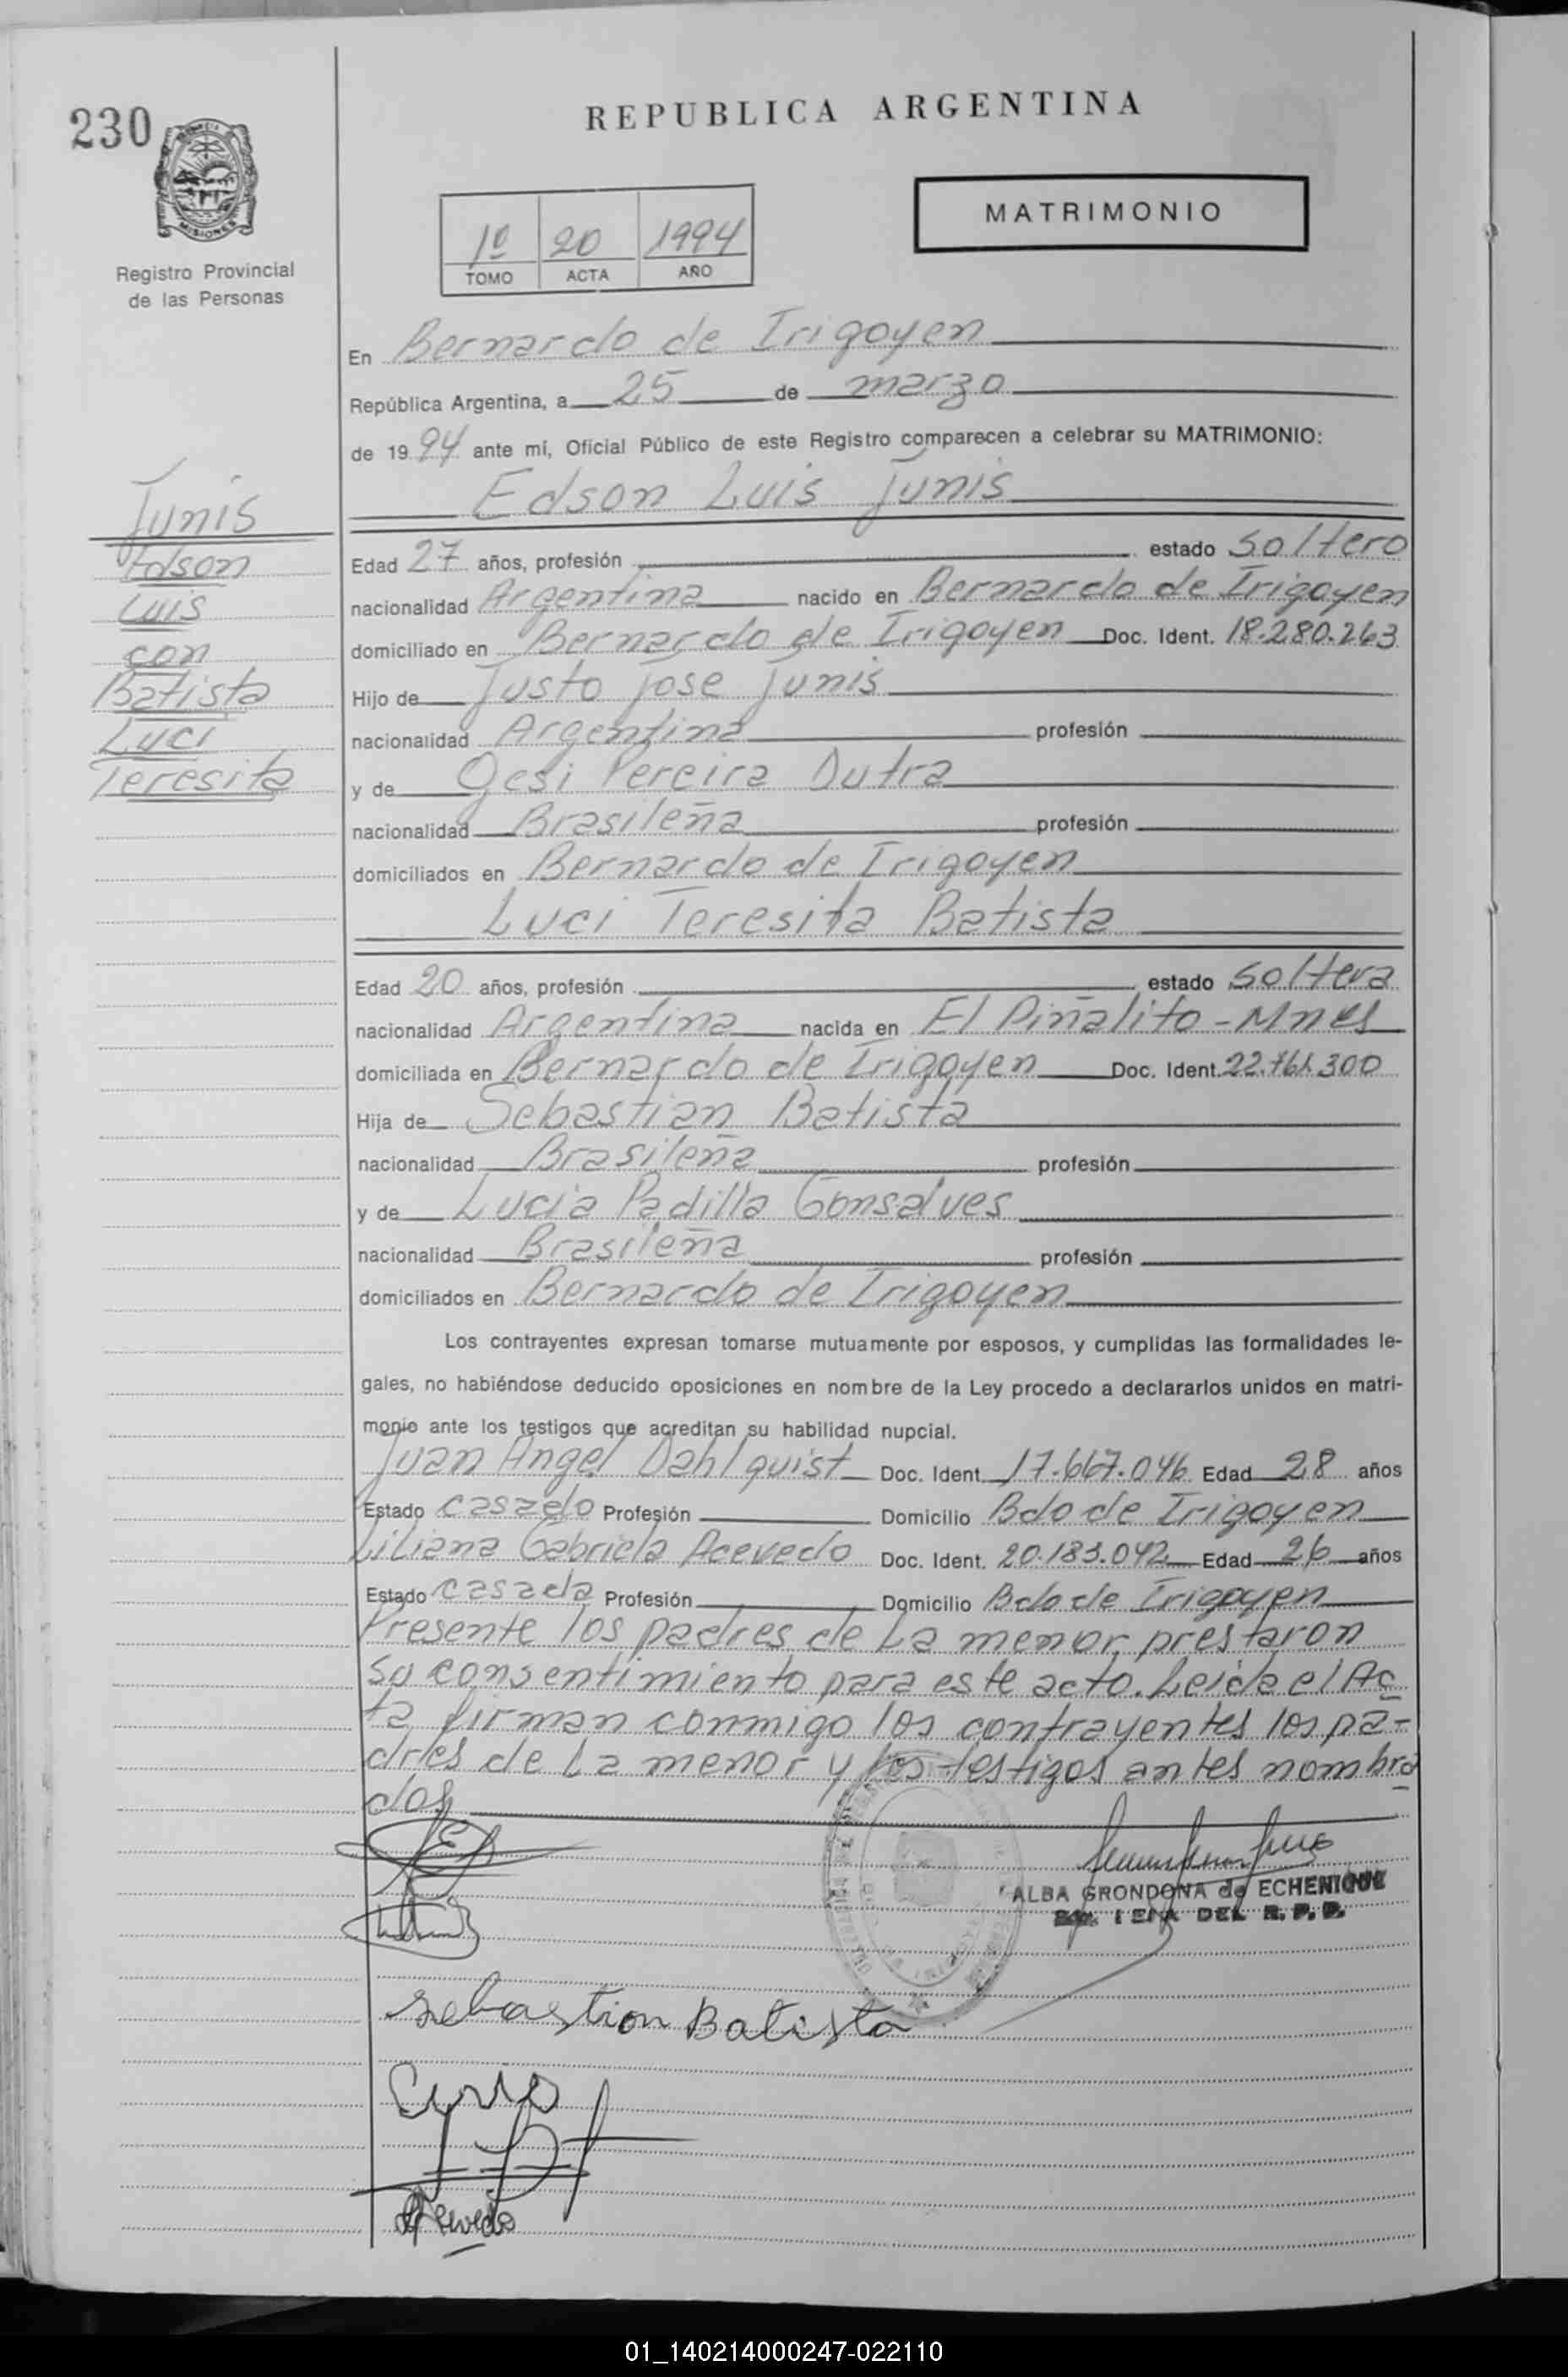 230
REPUBLICA ARGENTINA
MISIONES
Registro Provincial
de las Personas
1º 20 1994
TOMO ACTA AÑO
MATRIMONIO
En Bernardo de Irigoyen
República Argentina, a 25 de marzo
de 1994 ante mí, Oficial Público de este Registro comparecen a celebrar su MATRIMONIO:
Edson Luis Junis
Junis
Edson
Luis
con
Batista
Luci
Teresita
Edad 27 años, profesión estado Soltero
nacionalidad Argentina nacido en Bernardo de Irigoyen
domiciliado en Bernardo de Irigoyen Doc. Ident. 18.280.263
Hijo de Justo Jose Junis
nacionalidad Argentina profesión
y de Gesi Pereira Dutra
nacionalidad Brasileña profesión
domiciliados en Bernardo de Irigoyen
Luci Teresita Batista
Edad 20 años, profesión estado Soltera
nacionalidad Argentina nacida en El Piñalito - Mnes
domiciliada en Bernardo de Irigoyen Doc. Ident.
Hija de Sebastian Batista
nacionalidad Brasileña profesión
y de Lucia Padilla Gonsalves
nacionalidad Brasileña profesión
domiciliados en Bernardo de Irigoyen
Los contrayentes expresan tomarse mutuamente por esposos, y cumplidas las formalidades le-
gales, no habiéndose deducido oposiciones en nombre de la Ley procedo a declararlos unidos en matri-
monio ante los testigos que acreditan su habilidad nupcial.
Juan Angel Dahlquist Doc. Ident. 17.667.046 Edad 28 años
Estado Casado Profesión Domicilio Bdo de Irigoyen
Liliana Gabriela Acevedo Doc. Ident. 20.183.042 Edad 26 años
Estado Casada Profesión Domicilio Bdo de Irigoyen
Presente los padres de La menor, prestaron
su consentimiento para este acto. Leida el Ac
ta firman conmigo los contrayentes los pa-
dres de La menor y los testigos antes nombra
dos
ALBA GRONDONA de ECHENIQUE
DEL R. P. P.
Sebastion Batista
Acevedo
01_140214000247-022110